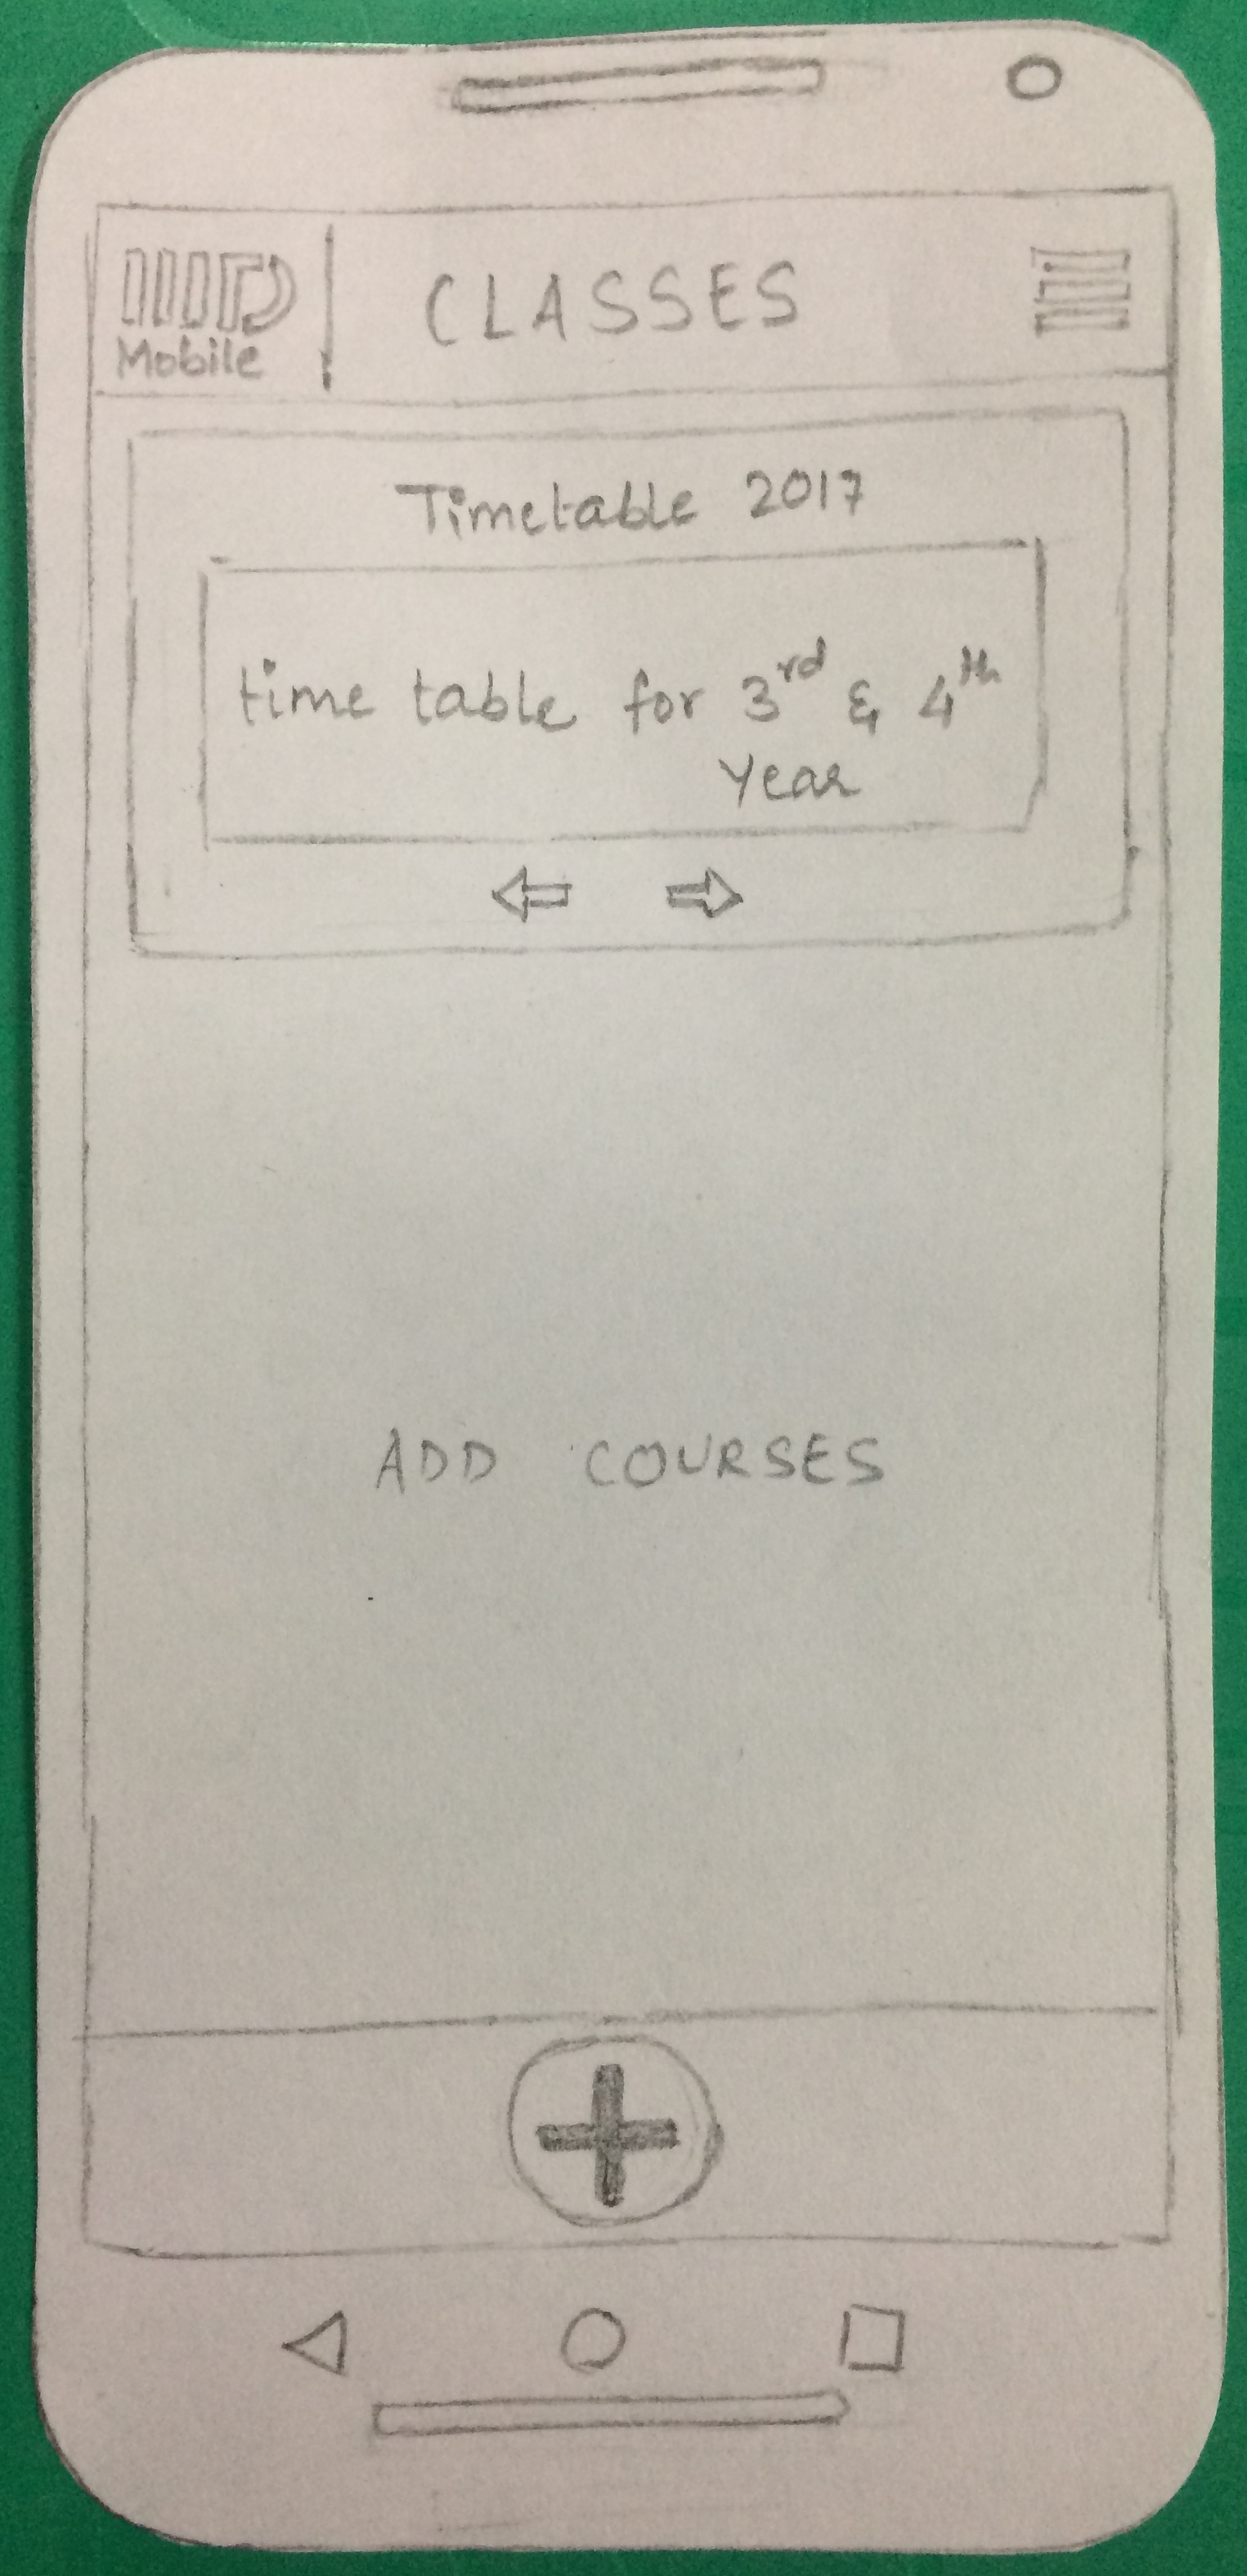 IIITD
Mobile
CLASSES
Timetable 2017
time table for 3rd & 4th
Year
ADD COURSES